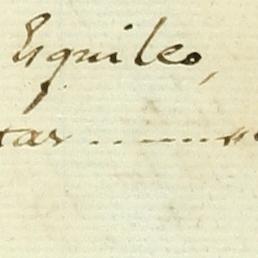 Esquileo,
tas